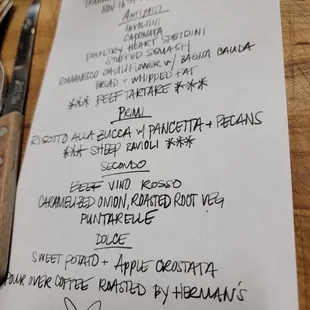 NOV 16TH
ANTIPASTI
INVOLTINI
CAPONATA
POULTRY HEART SPEIDINI
STUFFED SQUASH
ROMANESCO CAULIFLOWER W/ BAGNA CAUDA
BREAD + WHIPPED FAT
*** BEEF TARTARE ***
PRIMI
RISOTTO ALLA ZUCCA W/ PANCETTA + PECANS
*** SHEEP RAVIOLI ***
SECONDO
BEEF VINO ROSSO
CARAMELIZED ONION, ROASTED ROOT VEG
PUNTARELLE
DOLCE
SWEET POTATO + APPLE CROSTATA
POUR OVER COFFEE ROASTED BY HERMAN'S